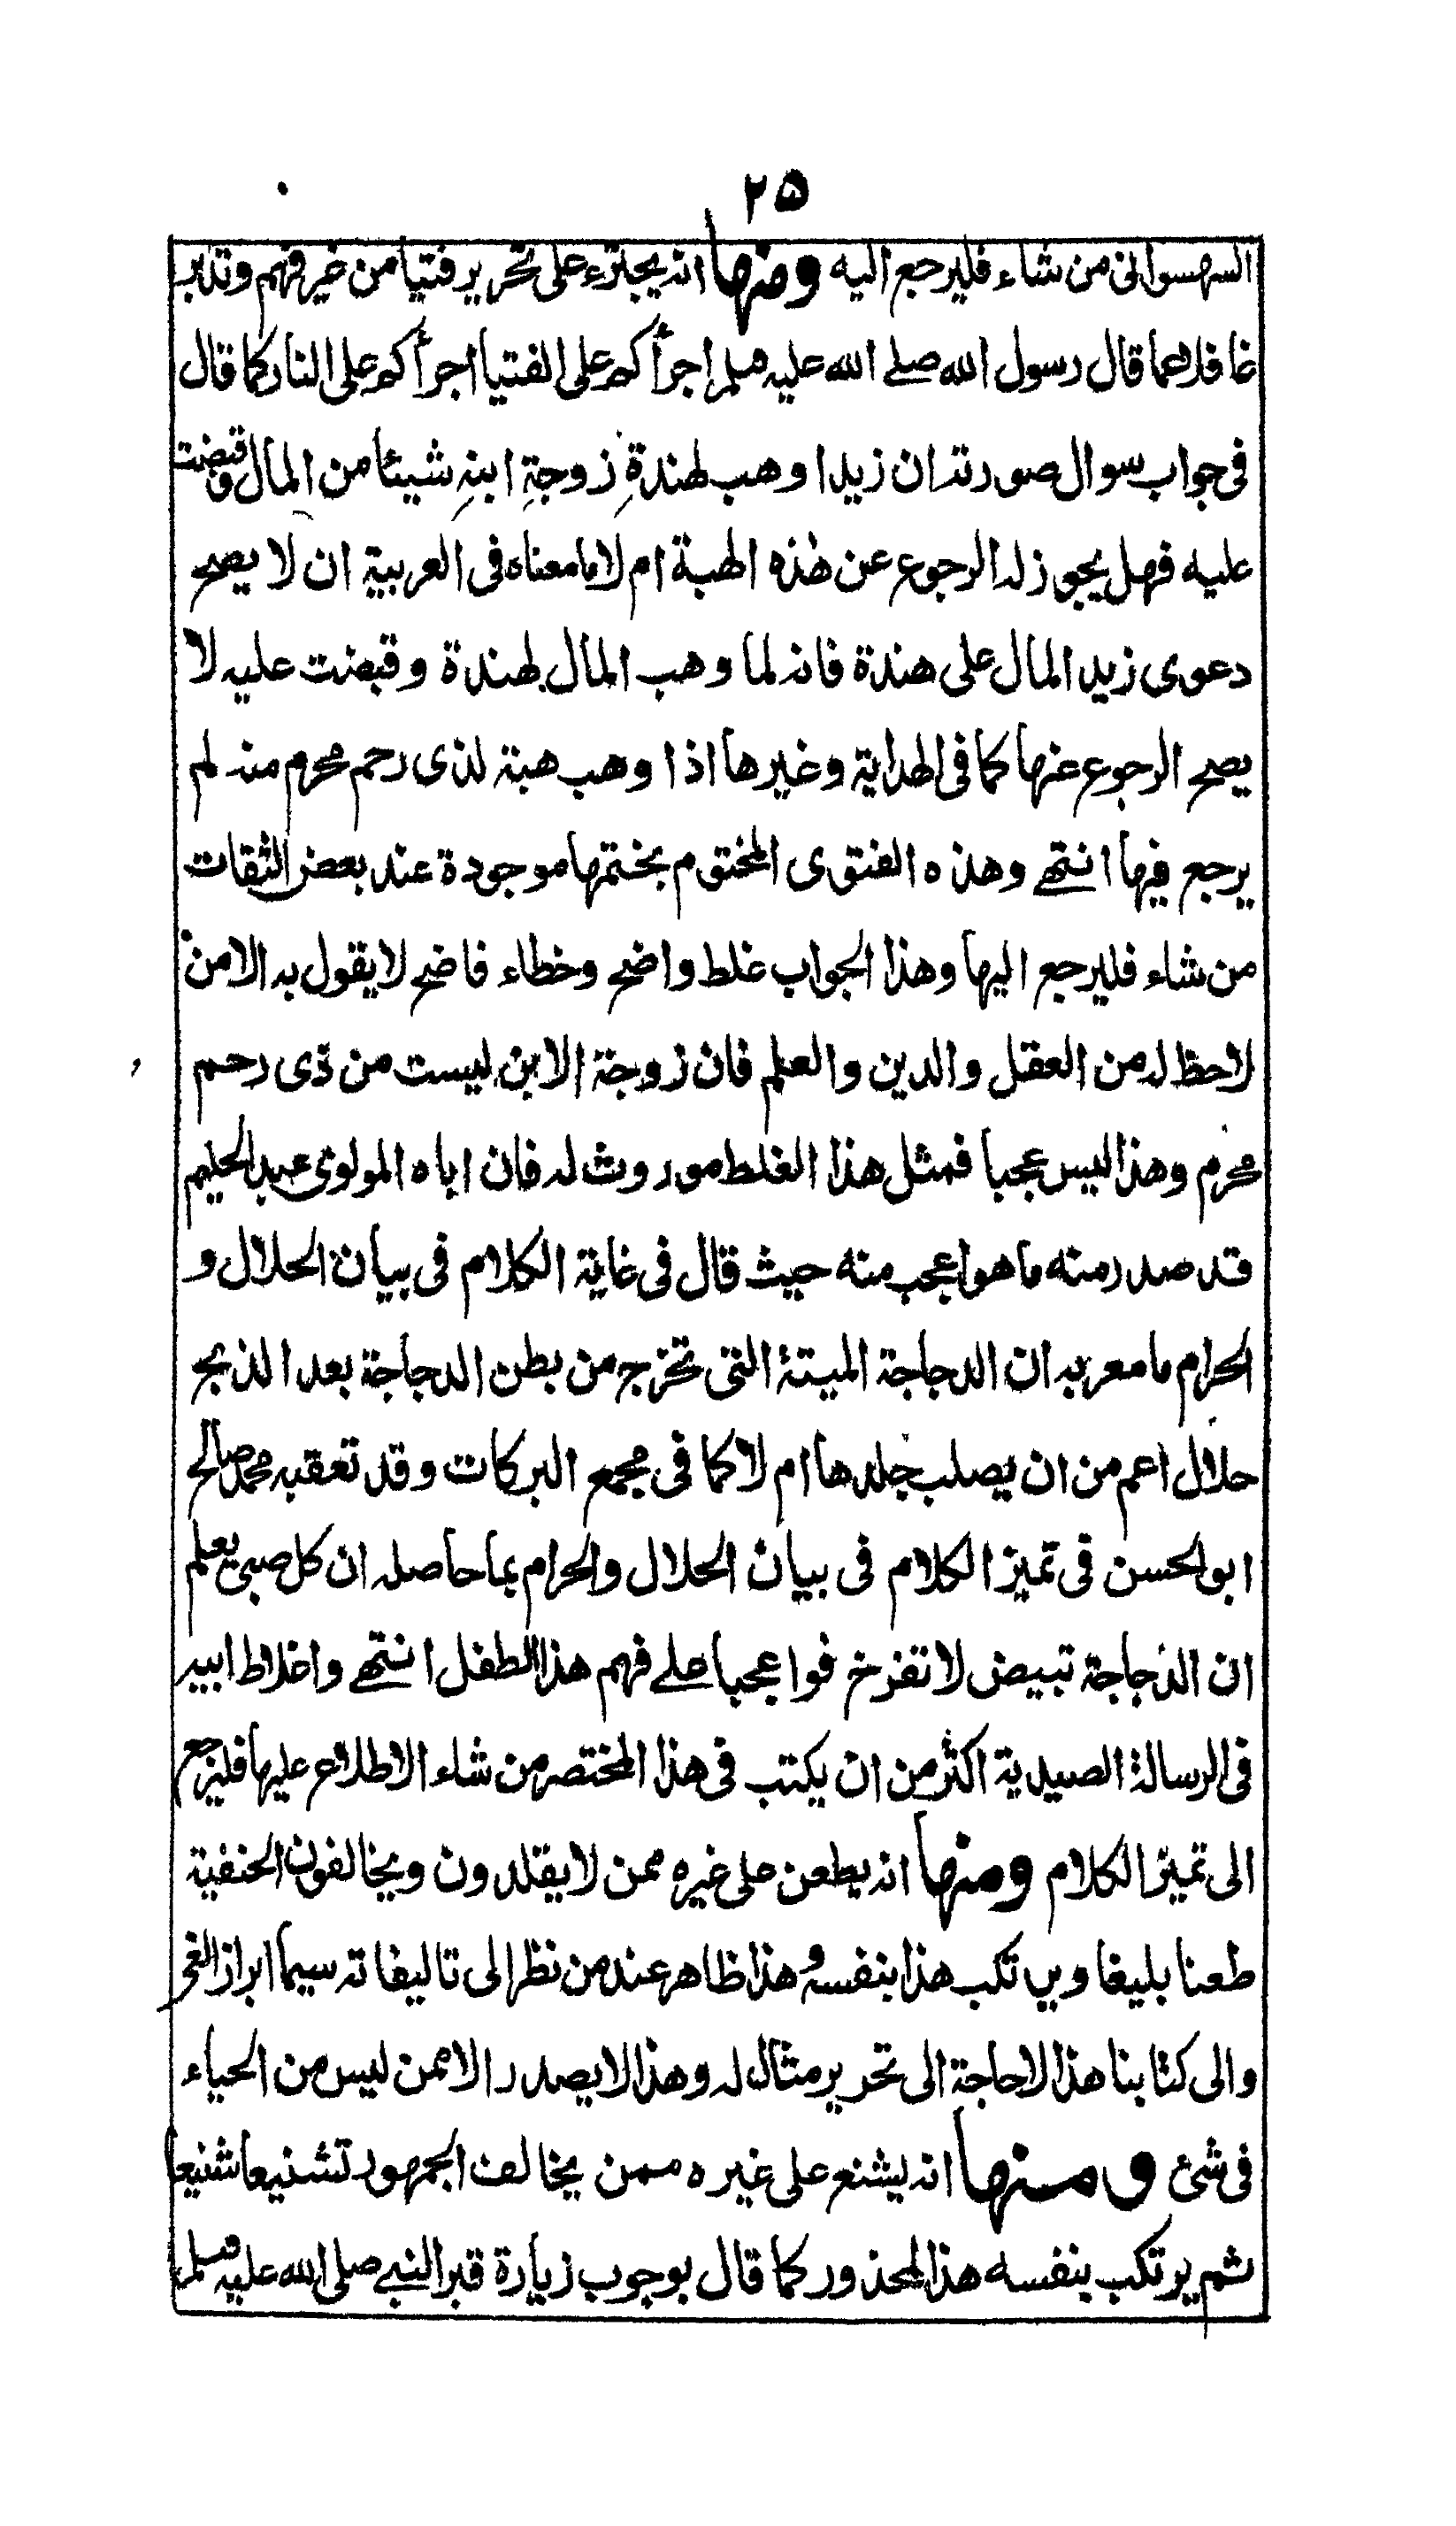 ٢٥
السهسوانى من شاء فليرجع اليه ومنها انه يجترء على تحرير فتيا من غير فهم وتدبر
غافلا عما قال رسول الله صلے الله عليه وسلم اجرأكم على الفتيا اجرأكم على النار كما قال
فى جواب سوال صورته ان زيدا وهب لهندةِ زوجةِ ابنهِ شيئا من المال وقبضت
عليه فهل يجوز له الرجوع عن هذه الهبة ام لا ما معناه فى العربية ان لا يصح
دعوى زيد المال على هندة فانه لما وهب المال لهندة وقبضت عليه لا
يصح الرجوع عنها كما فى الهداية وغيرها اذا وهب هبة لذى رحم محرم منه لم
يرجع فيها انتهے وهذه الفتوى المختوم بختمها موجودة عند بعض الثقات
من شاء فليرجع اليها وهذا الجواب غلط واضح وخطاء فاضح لا يقول به الا من
لا حظ له من العقل والدين والعلم فان زوجة الابن ليست من ذى رحم
محرم وهذا ليس عجبا فمثل هذا الغلط موروث له فان اباه المولوى عبد الحليم
قد صدر منه ما هو اعجب منه حيث قال فى غاية الكلام فى بيان الحلال و
الحرام ما معربه ان الدجاجة الميتة التى تخرج من بطن الدجاجة بعد الذبح
حلال اعم من ان يصلب جلدها ام لا كما فى مجمع البركات وقد تعقبه محمد صالح
ابو الحسن فى تميز الكلام فى بيان الحلال والحرام بما حاصله ان كل صبى يعلم
ان الدجاجة تبيض لا تفرخ فوا عجبا علے فهم هذا الطفل انتهے واغلاط ابيه
فى الرسالة الصيدية اكثر من ان يكتب فى هذا المختصر من شاء الاطلاع عليها فليرجع
الى تميز الكلام ومنها انه يطعن على غيره ممن لا يقلدون ويخالفون الحنفية
طعنا بليغا ويرتكب هذا بنفسه وهذا ظاهر عند من نظر الى تاليفاته سيما ابراز الغى
والى كتابنا هذا لا حاجة الى تحرير مثال له وهذا لا يصدر الا ممن ليس من الحياء
فى شئ ومنها انه يشنع على غيره ممن يخالف الجمهور تشنيعا شنيعا
ثم يرتكب بنفسه هذا المحذور كما قال بوجوب زيارة قبر النبے صلى الله عليه وسلم